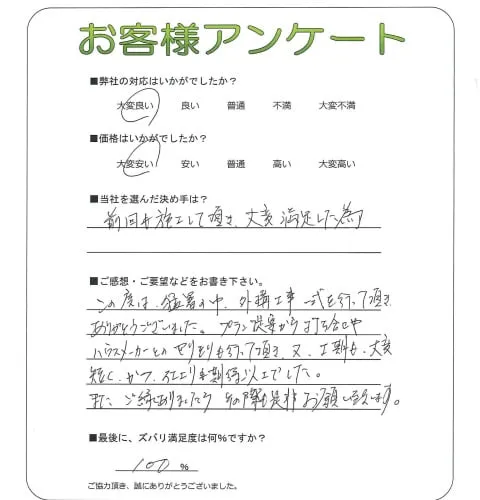 お客様アンケート
■弊社の対応はいかがでしたか?
大変良い 良い 普通 不満 大変不満
■価格はいかがでしたか?
大変安い 安い 普通 高い 大変高い
■当社を選んだ決め手は?
前回も施工して頂き、大変満足した為
■ご感想・ご要望などをお書き下さい。
この度は、猛暑の中、外構工事一式を行って頂き
ありがとうございました。プラン提案から打ち合せや
ハウスメーカーとのやりとりも行って頂き、又、工期も、大変
短く、かつ、仕上りも期待以上でした。
また、ご縁ありましたら、その際も是非お願い致します。
■最後に、ズバリ満足度は何%ですか?
100 %
ご協力頂き、誠にありがとうございました。